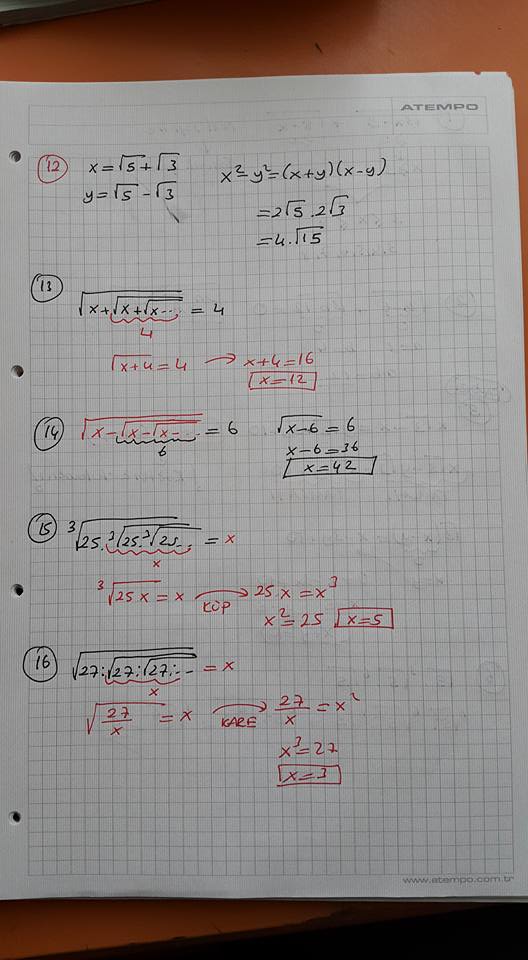 ATEMPO
12 x=√5+√3 x²-y²=(x+y)(x-y)
y=√5-√3
=2√5.2√3
=4.√15
13
√(x+√(x+√(x...))) = 4
4
√(x+4)=4 → x+4=16
x=12
14 √(x-√(x-√(x-...))) = 6 √(x-6)=6
6
x-6=36
x=42
15 ³√(25.³√(25.³√(25...))) = x
x
³√(25x) = x → 25x=x³
KÜP
x²=25 x=5
16 √(27:√(27:√(27:...))) = x
x
√(27/x) = x → 27/x = x²
KARE
x³=27
x=3
www.atempo.com.tr